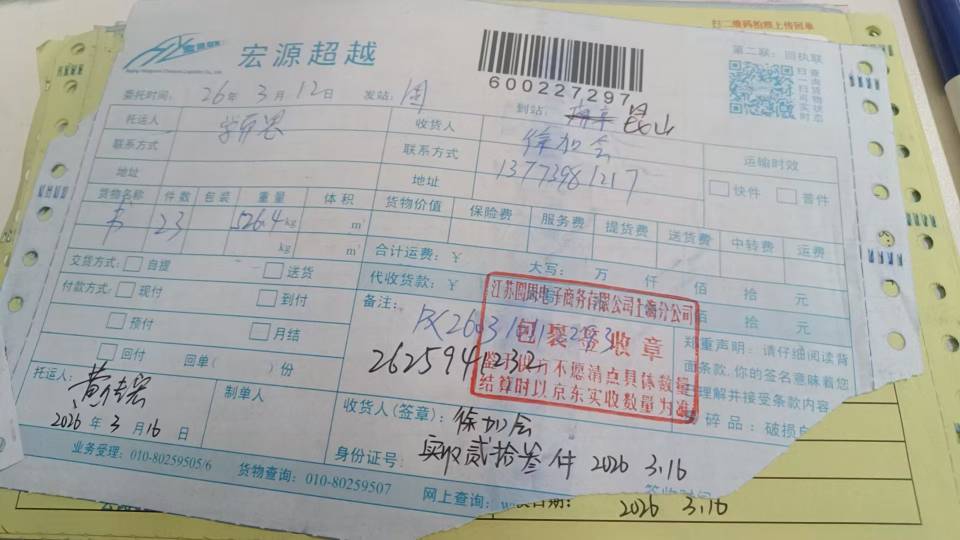 扫二维码拍照上传回单
宏源超越
600227297
第二联:回执联
扫一扫货物实时状态
委托时间: 26年 3月 12日 发站:
到站: 昆山
托运人
收货人 徐加会
联系方式
联系方式 13773981217
地址
地址
运输时效
快件 普件
货物名称 件数 包装 重量 体积 货物价值 保险费 服务费 提货费 送货费 中转费 运费
书 23 526.4kg m³
kg m³
合计运费:¥ 大写: 万 仟 佰 拾 元
交货方式: 自提 送货
代收货款:¥ 佰 拾 元
付款方式: 现付 到付
备注:
预付 月结
回付 回单( )份
江苏圆周电子商务有限公司上海分公司
包裹签收章
不愿清点具体数量
结算时以京东实收数量为准
郑重声明:请仔细阅读背
面条款,你的签名意味着您
理解并接受条款内容
碎品:破损自
托运人:
2026年3月16日
制单人
收货人(签章): 徐加会
身份证号: 实收贰拾叁件 2026 3.16
业务受理:010-80259505/6
货物查询:010-80259507
网上查询:
签收时间
日期: 2026 3.16